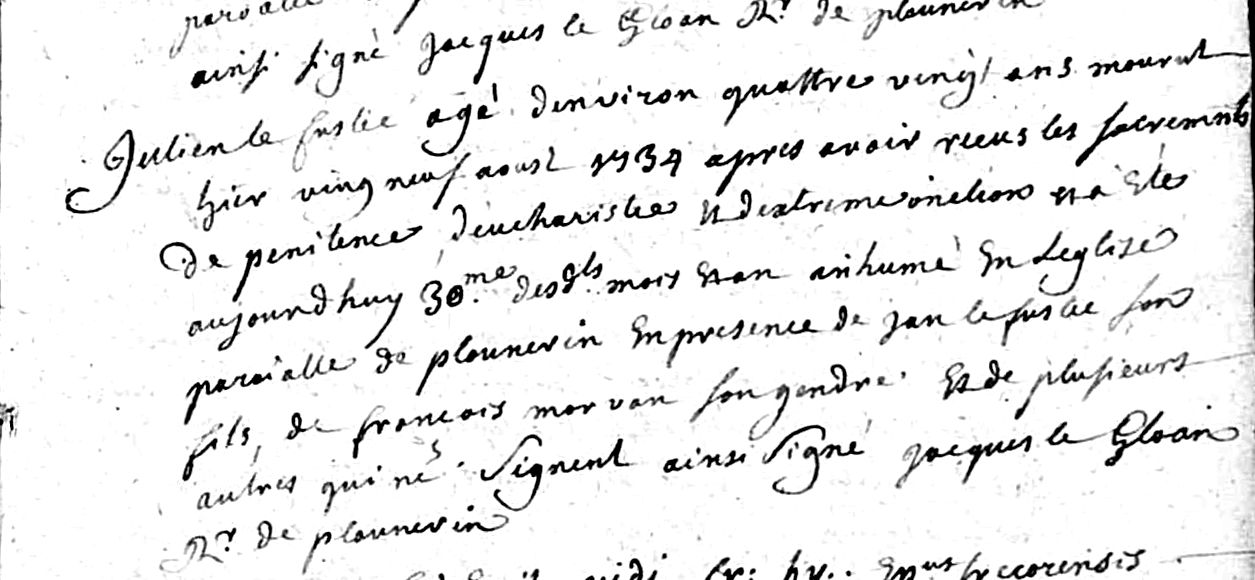 paroialle
ainsi signé jacques le Gloan Rr. de plounerin
Julien le fustec agé denviron quattre vingt ans mourut
hier vingneuf aoust 1734 apres avoir receus les sacrements
de penitence, deucharistie et dextreme onction et a Eté
aujourdhuy 30me. desdts mois et an inhumé En Leglise
paroialle de plounerin En presence de jan le fustec son
fils, de francois morvan son gendre. et de plusieurs
autres qui ne signent ainsi signé jacques le Gloan
Rr. de plounerin
vidi